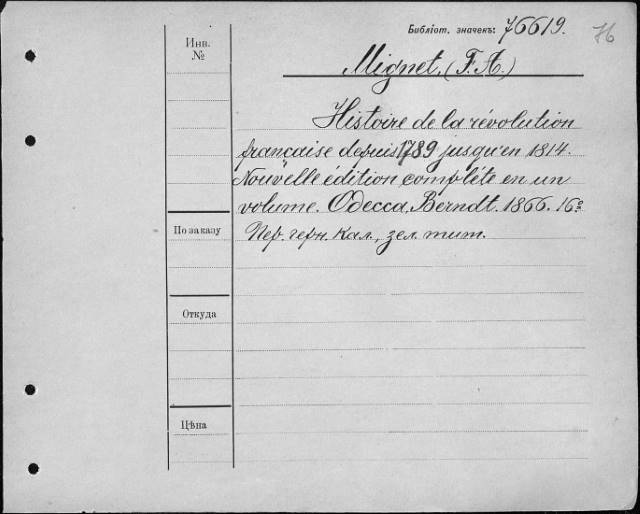 Библіот. значекъ: 76619.
76
Инв.
№
Mignet, (F. A.)
Histoire de la révolution
française depuis 1789 jusqu'en 1814.
Nouvelle édition complète en un
volume. Одесса, Berndt. 1866. 16º
По заказу
Пер. черн. кал., зел. тит.
Откуда
Цѣна